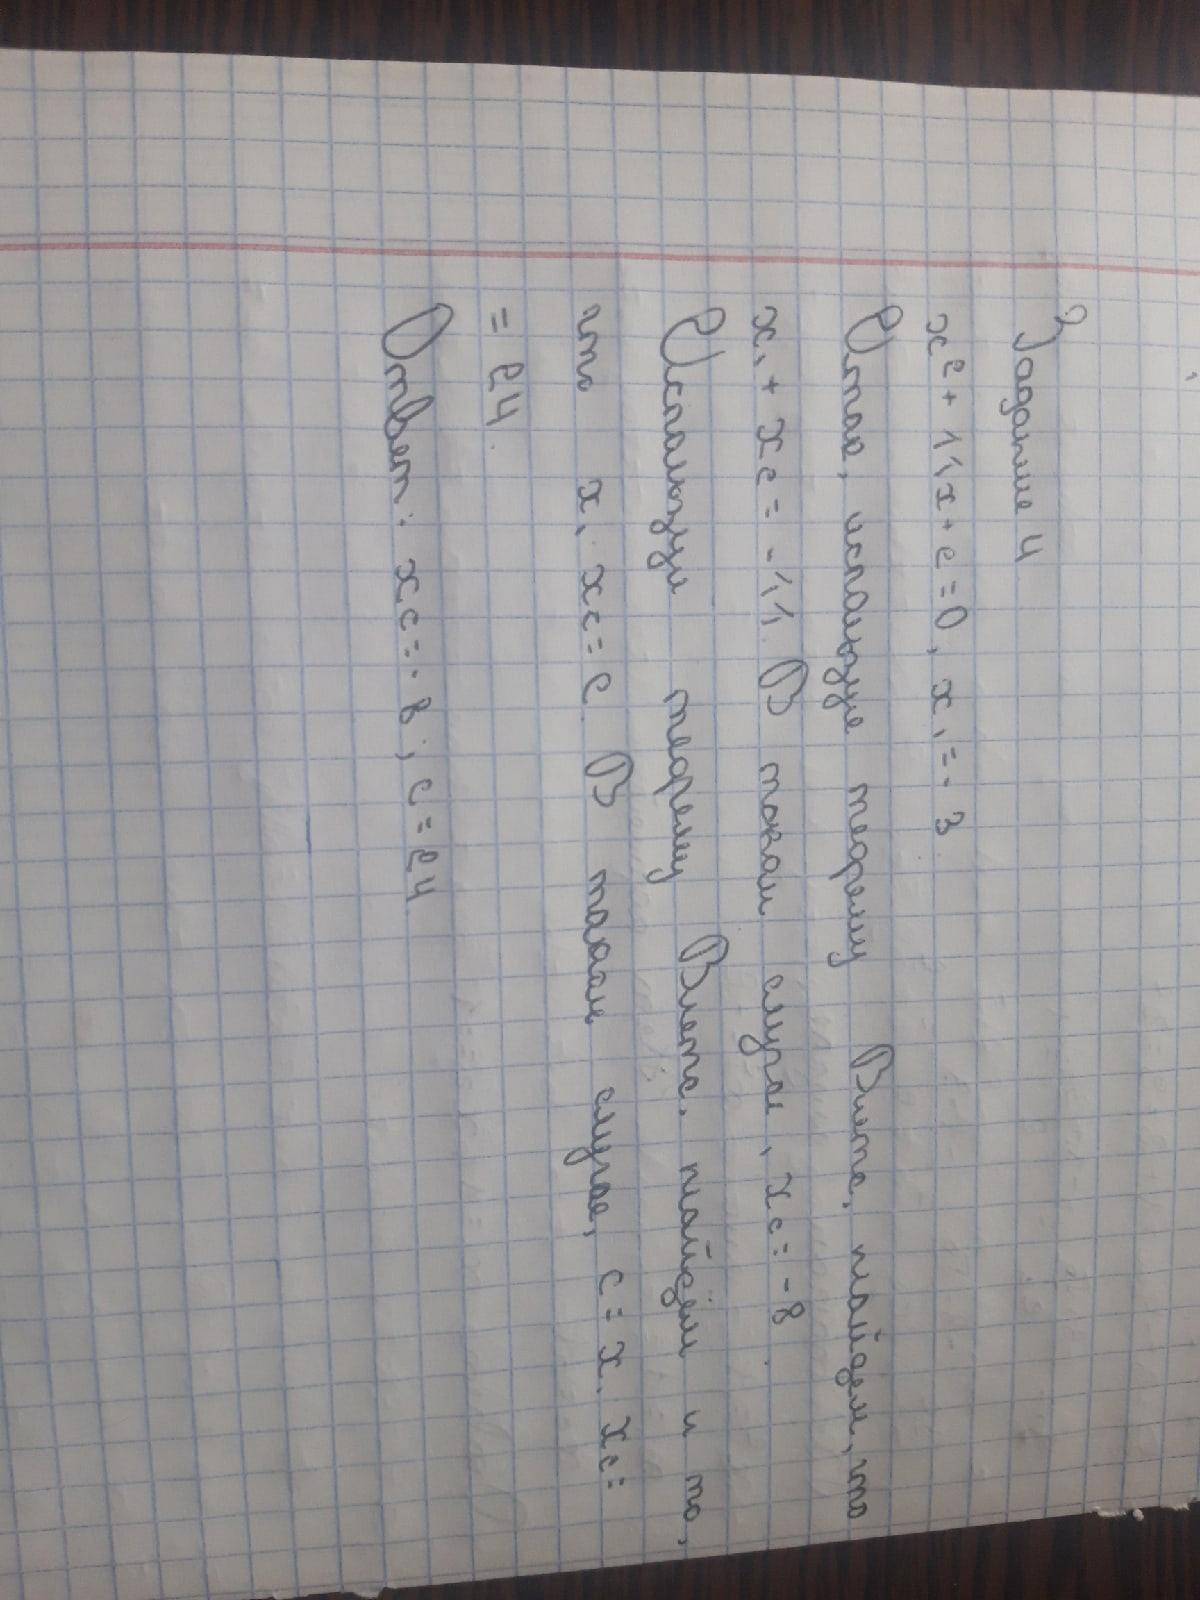 Задание 4
x² + 11x + c = 0, x₁ = -3
Итак, используя теорему Виета, найдем, что
x₁ + x₂ = -11. В таком случае, x₂ = -8
Используя теорему Виета, найдём и то,
что x₁ x₂ = c В таком случае, c = x₁ x₂ =
= 24.
Ответ: x₂ = -8; c = 24